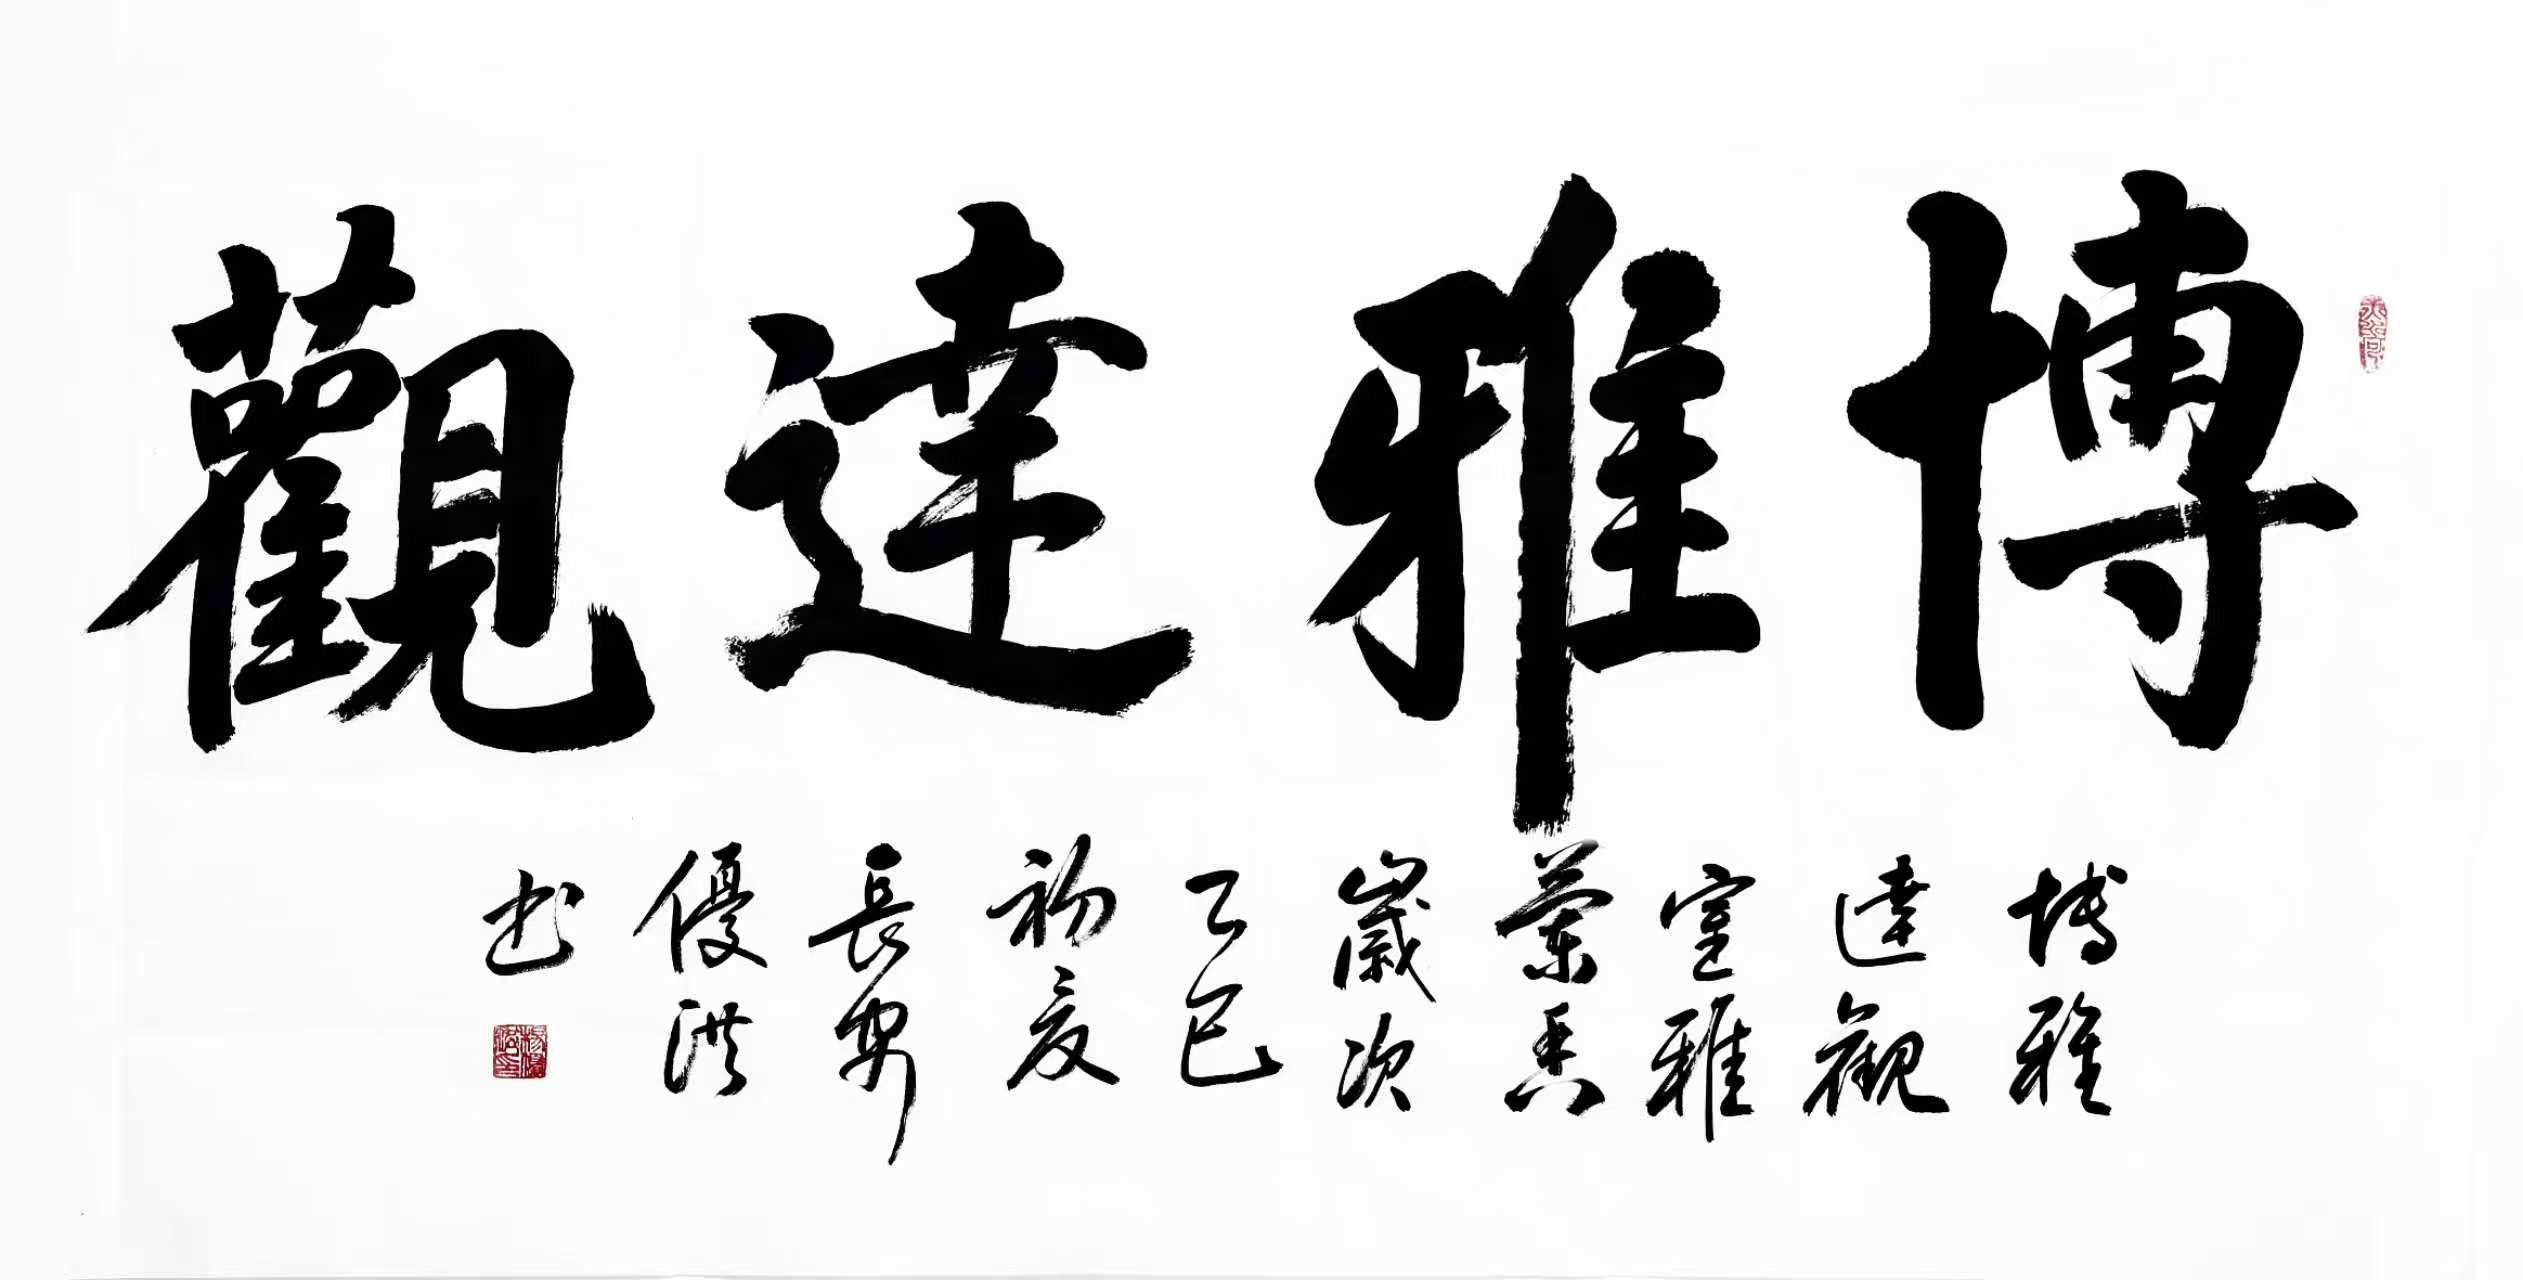 博雅達觀
博雅
達觀
室雅
蘭香
歲次
乙巳
初夏
長安
優洪
书